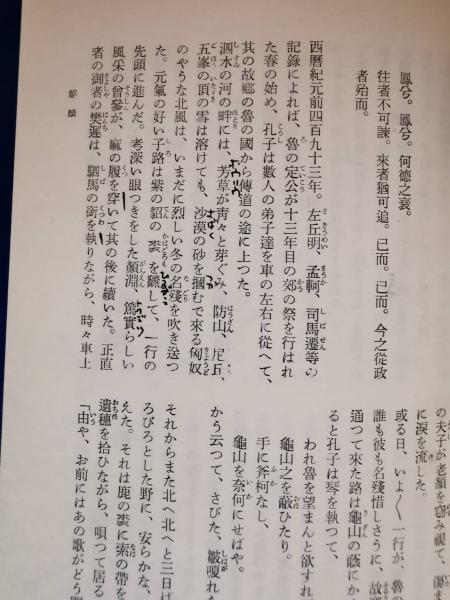 鳳兮。鳳兮。何德之衰。
往者不可諫。來者猶可追。已而。已而。今之從政
者殆而。
西曆紀元前四百九十三年。左丘明、孟軻、司馬遷等の
記錄によれば、魯の定公が十三年目の郊の祭を行はれ
た春の始め、孔子は數人の弟子達を車の左右に從へて、
其の故鄕の魯の國から傳道の途に上つた。
泗水の河の畔には、芳草が靑々と芽ぐみ、防山、尼丘、
五峯の頂の雪は溶けても、沙漠の砂を摑むで來る匈奴
のやうな北風は、いまだに烈しい冬の名殘を吹き送つ
た。元氣の好い子路は紫の貂の裘を飜して、一行の
先頭に進んだ。考深い眼つきをした顏淵、篤實らしい
風采の曾參が、麻の履を穿いて其の後に續いた。正直
者の御者の樊遲は、駟馬の銜を執りながら、時々車上
の夫子が老顏を窃み視て、傷ま
に淚を流した。
或る日、いよ〱一行が、魯の
誰も彼も名殘惜しさうに、故
通つて來た路は龜山の蔭にか
ると孔子は琴を執つて、
われ魯を望まんと欲すれ
龜山之を蔽ひたり。
手に斧柯なし、
龜山を奈何にせばや。
かう云つて、さびた、皺嗄れ
それからまた北へ北へと三日ば
ろびろとした野に、安らかな、
えた。それは鹿の裘に索の帶を
遺穗を拾ひながら、唄つて居る
「由や、お前にはあの歌がどう
麒麟